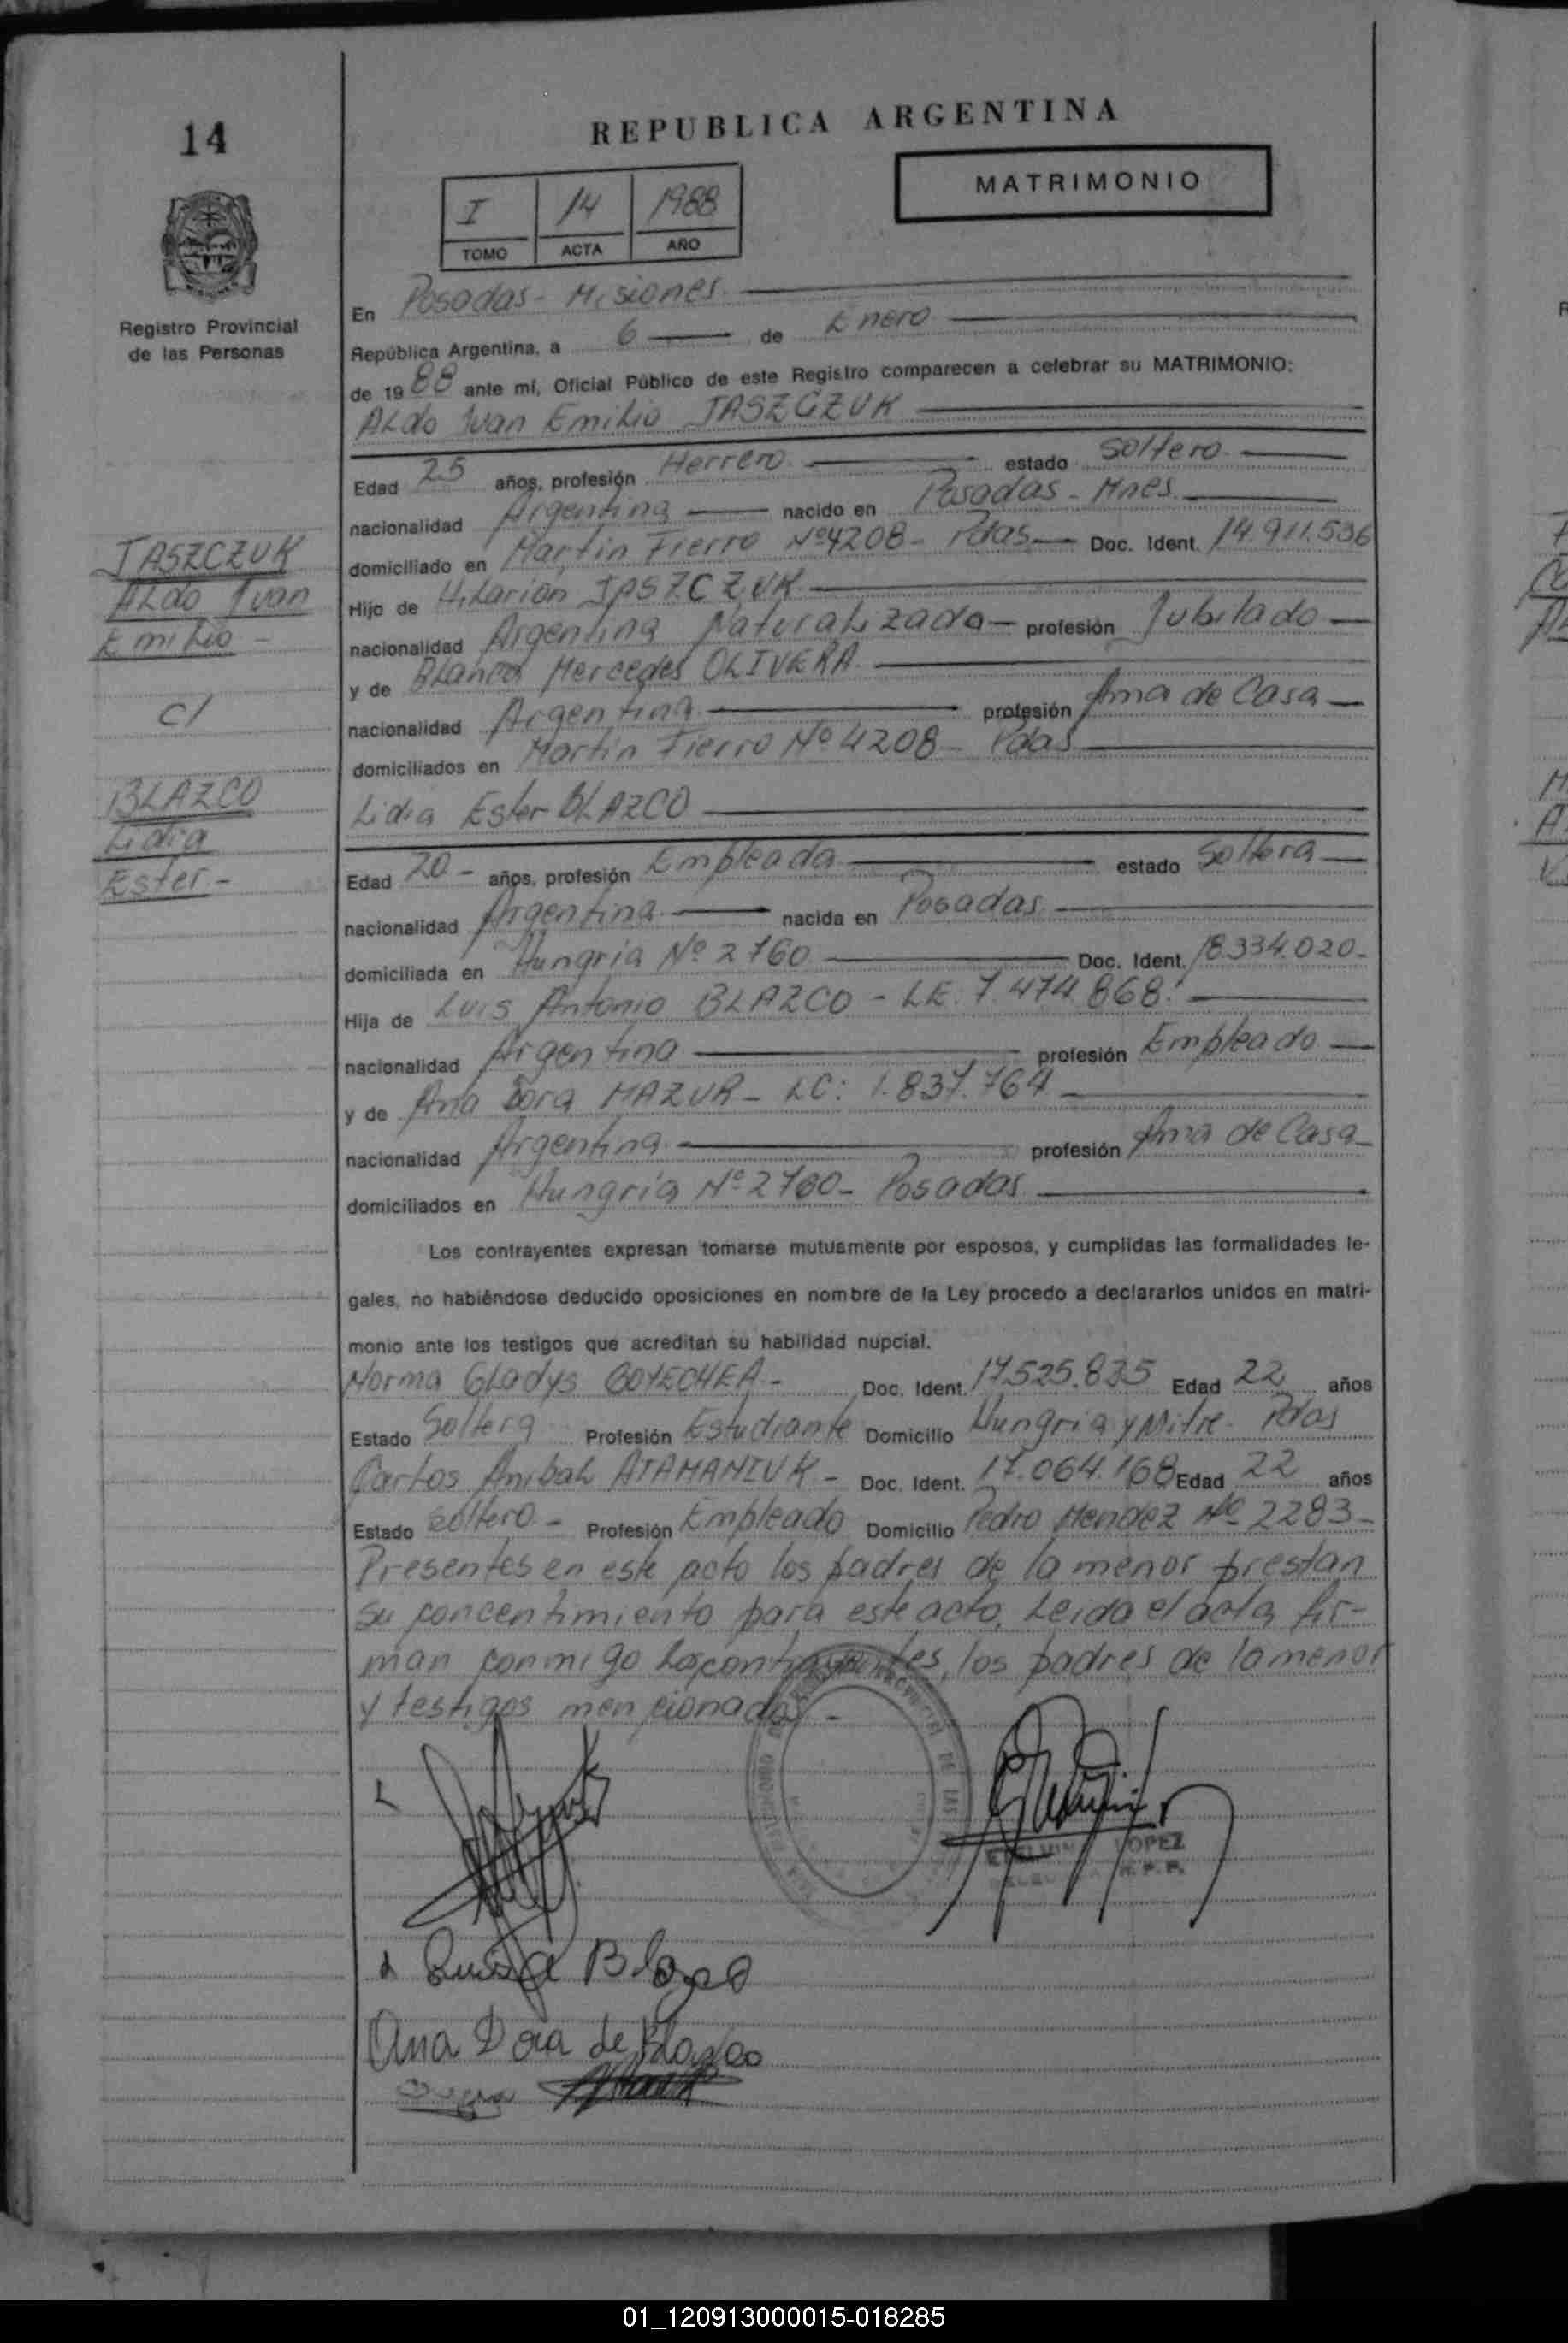 14
REPUBLICA ARGENTINA
MATRIMONIO
I 14 1988
TOMO ACTA AÑO
Registro Provincial
de las Personas
En Posadas - Misiones.
República Argentina, a 6 de Enero
de 1988 ante mí, Oficial Público de este Registro comparecen a celebrar su MATRIMONIO:
Aldo Ivan Emilio JASZCZUK
Edad 25 años, profesión Herrero estado Soltero
nacionalidad Argentina nacido en Posadas - Mnes.
domiciliado en Martin Fierro Nº 4208 - Pdas Doc. Ident. 14.911.536
Hijo de Hilarión JASZCZUK
nacionalidad Argentina Naturalizado profesión Jubilado
y de Blanca Mercedes OLIVERA.
nacionalidad Argentina profesión Ama de Casa
domiciliados en Martin Fierro Nº 4208 - Pdas
Lidia Ester BLAZCO
Edad 20 - años, profesión Empleada estado Soltera
nacionalidad Argentina nacida en Posadas
domiciliada en Hungria Nº 2760 Doc. Ident. 18.334.020-
Hija de Luis Antonio BLAZCO - LE. 7.474.868.
nacionalidad Argentina profesión Empleado
y de Ana Dora MAZUR - LC: 1.837.764
nacionalidad Argentina profesión Ama de Casa
domiciliados en Hungria Nº 2760 - Posadas
JASZCZUK
Aldo Ivan
Emilio -
c/
BLAZCO
Lidia
Ester -
Los contrayentes expresan tomarse mutuamente por esposos, y cumplidas las formalidades le-
gales, no habiéndose deducido oposiciones en nombre de la Ley procedo a declararlos unidos en matri-
monio ante los testigos que acreditan su habilidad nupcial.
Norma Gladys GOYECHEA - Doc. Ident. 17.525.835 Edad 22 años
Estado Soltera Profesión Estudiante Domicilio Hungria y Mitre - Pdas
Carlos Anibal ATAMANIUK - Doc. Ident. 17.064.168 Edad 22 años
Estado Soltero - Profesión Empleado Domicilio Pedro Mendez Nº 2283 -
Presentes en este acto los padres de la menor prestan
su concentimiento para este acto. Leida el acta fir-
man conmigo los contrayentes, los padres de la menor
y testigos mencionados. -
LOPEZ
R.P.P.
Blazco
Ana Dora de Blazco
01_120913000015-018285